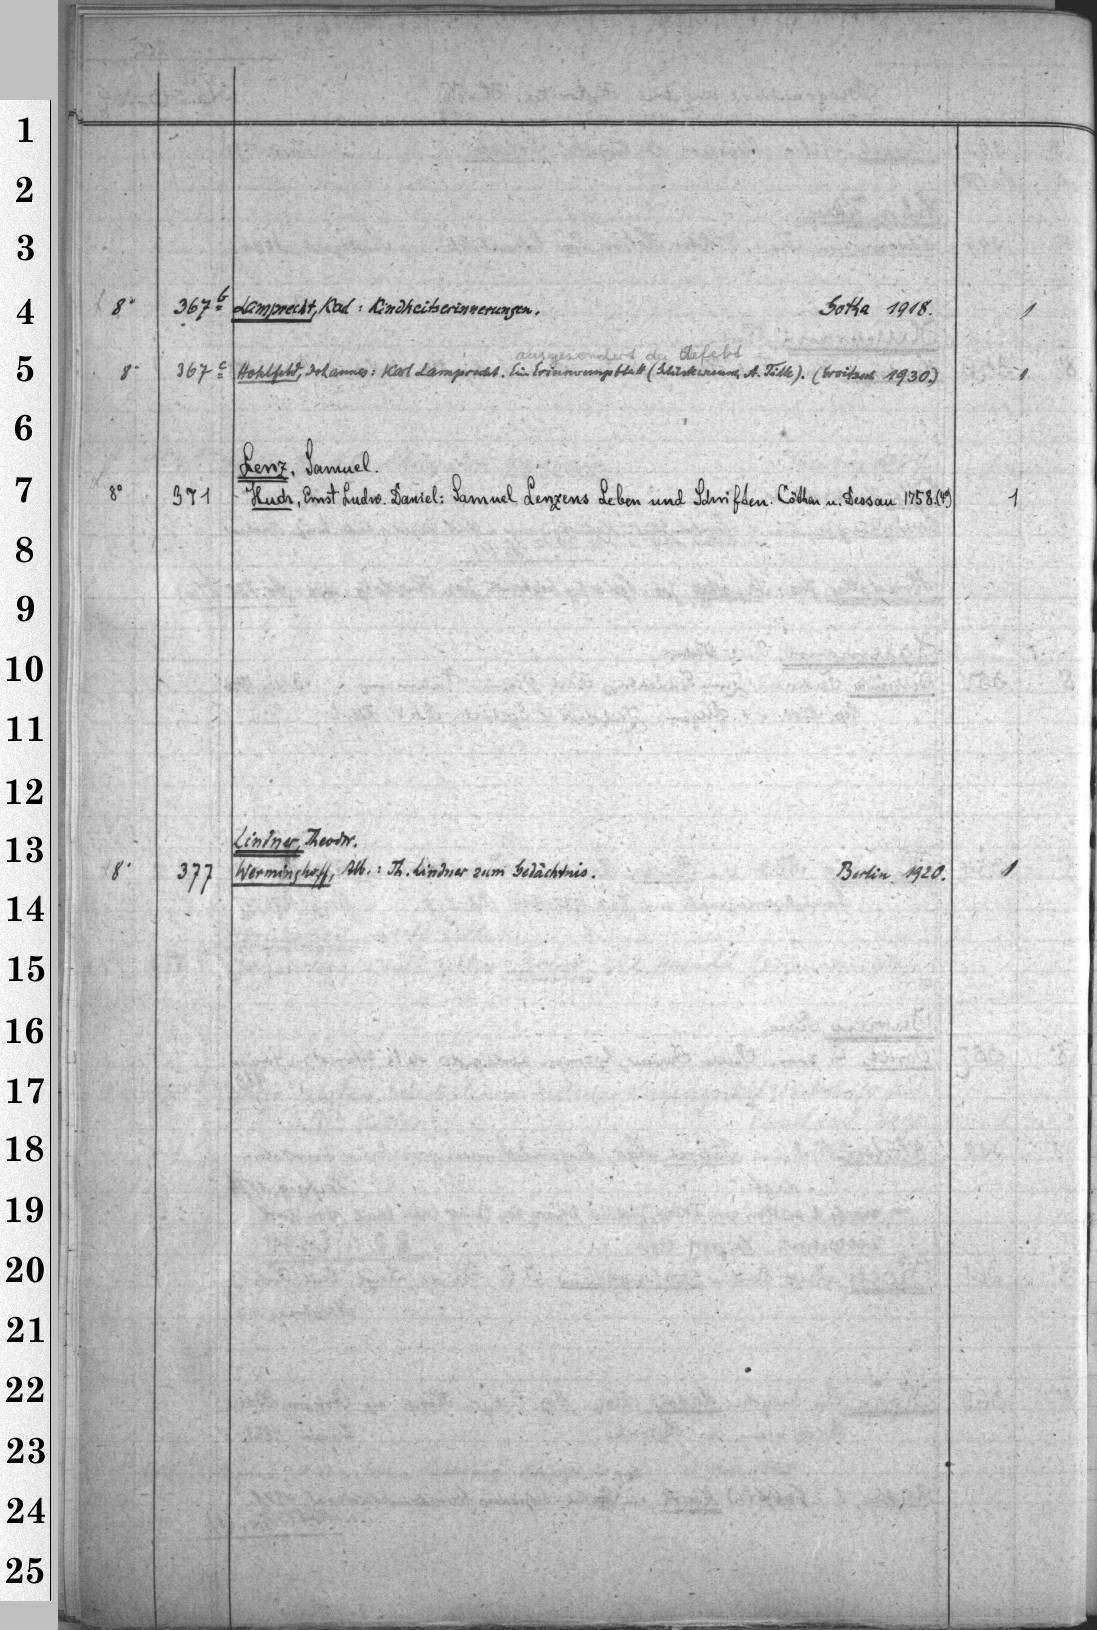 1
2
3
4
8° 367 b Lamprecht, Karl: Kindheitserinnerungen. Gotha 1918. 1
ausgesondert da defekt
5
8° 367 c Hohlfeld, Johannes: Karl Lamprecht. Ein Erinnerungsblatt (A. Tille). 1930.) 1
6
Lenz, Samuel.
7
8° 371 Huch, Ernst Ludw. Daniel: Samuel Lenzens Leben und Schriften. Cöthen u. Dessau 1758. (4°) 1
8
9
10
11
12
13
Lindner, Theodor.
8° 377 Werminghoff, Alb.: Th. Lindner zum Gedächtnis. Berlin 1920. 1
14
15
16
17
18
19
20
21
22
23
24
25